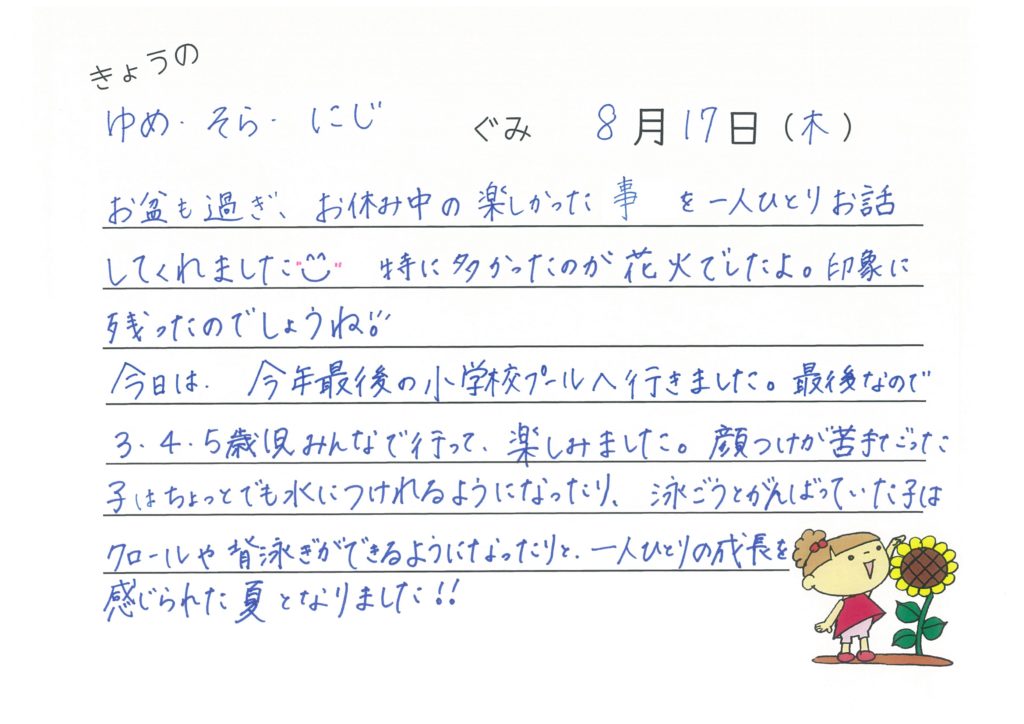 きょうの
ゆめ・そら・にじ ぐみ 8月17日(木)
お盆も過ぎ、お休み中の楽しかった事を一人ひとりお話
してくれました 特に多かったのが花火でしたよ。印象に
残ったのでしょうね!!
今日は、今年最後の小学校プールへ行きました。最後なので
3・4・5歳児みんなで行って、楽しみました。顔つけが苦手だった
子はちょっとでも水につけれるようになったり、泳ごうとがんばっていた子は
クロールや背泳ぎができるようになったりと、一人ひとりの成長を
感じられた夏となりました!!